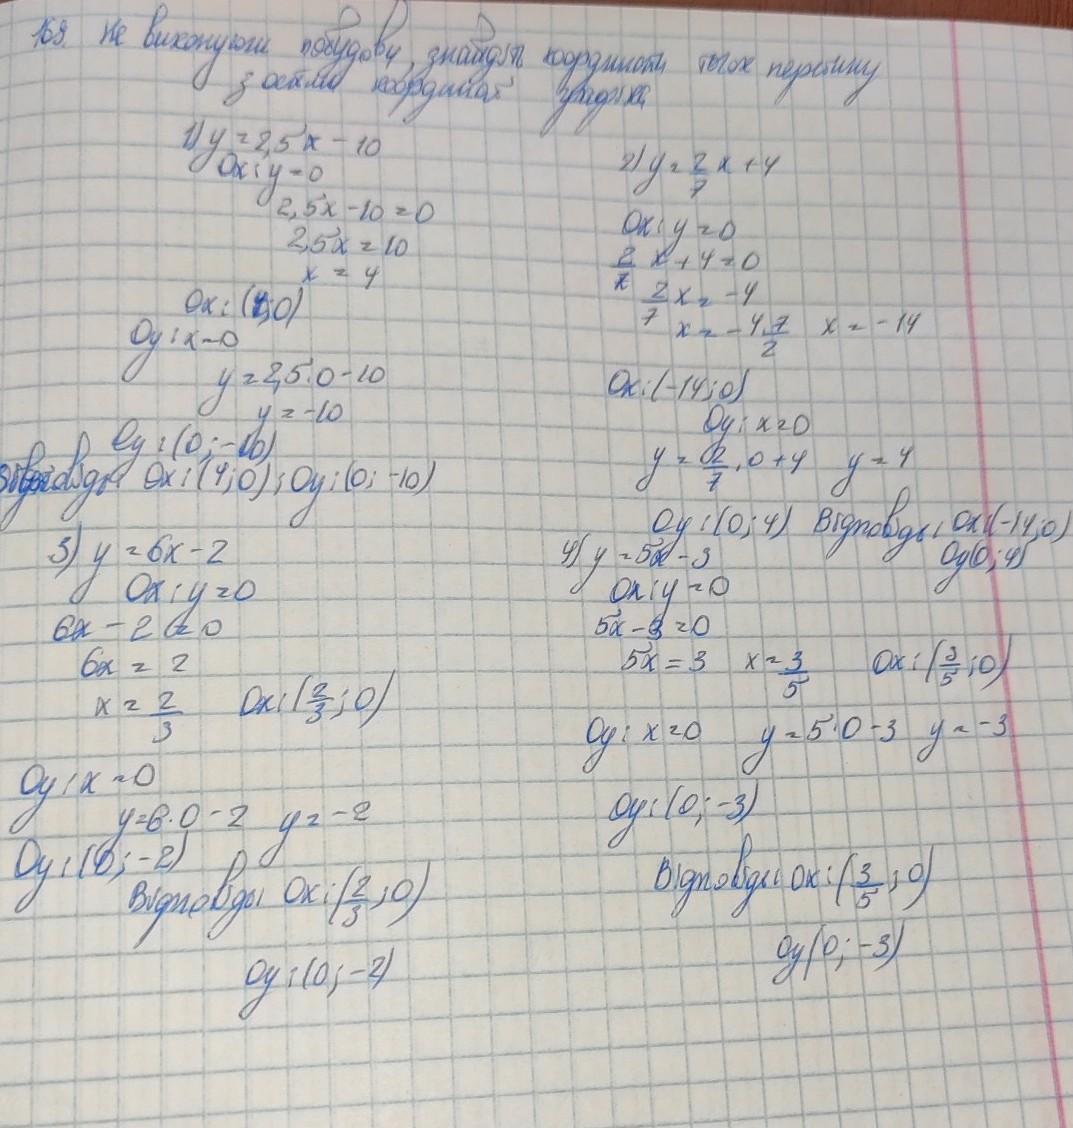 168. Не виконуючи побудову, знайдіть координати точок перетину
з осями координат графіка
1) y = 2,5x - 10
Ox: y = 0
2,5x - 10 = 0
2,5x = 10
x = 4
Ox: (4;0)
Oy: x = 0
y = 2,5·0 - 10
y = -10
Oy: (0; -10)
Відповідь: Ox: (4;0); Oy: (0; -10)
2) y = 2/7 x + 4
Ox: y = 0
2/7 x + 4 = 0
2/7 x = -4
x = -4·7/2 x = -14
Ox: (-14;0)
Oy: x = 0
y = 2/7 · 0 + 4 y = 4
Oy: (0; 4) Відповідь: Ox: (-14;0)
Oy(0; 4)
3) y = 6x - 2
Ox: y = 0
6x - 2 = 0
6x = 2
x = 2/3 Ox: (2/3; 0)
Oy: x = 0
y = 6·0 - 2 y = -2
Oy: (0; -2)
Відповідь: Ox: (2/3; 0)
Oy: (0; -2)
4) y = 5x - 3
Ox: y = 0
5x - 3 = 0
5x = 3 x = 3/5 Ox: (3/5; 0)
Oy: x = 0 y = 5·0 - 3 y = -3
Oy: (0; -3)
Відповідь: Ox: (3/5; 0)
Oy(0; -3)